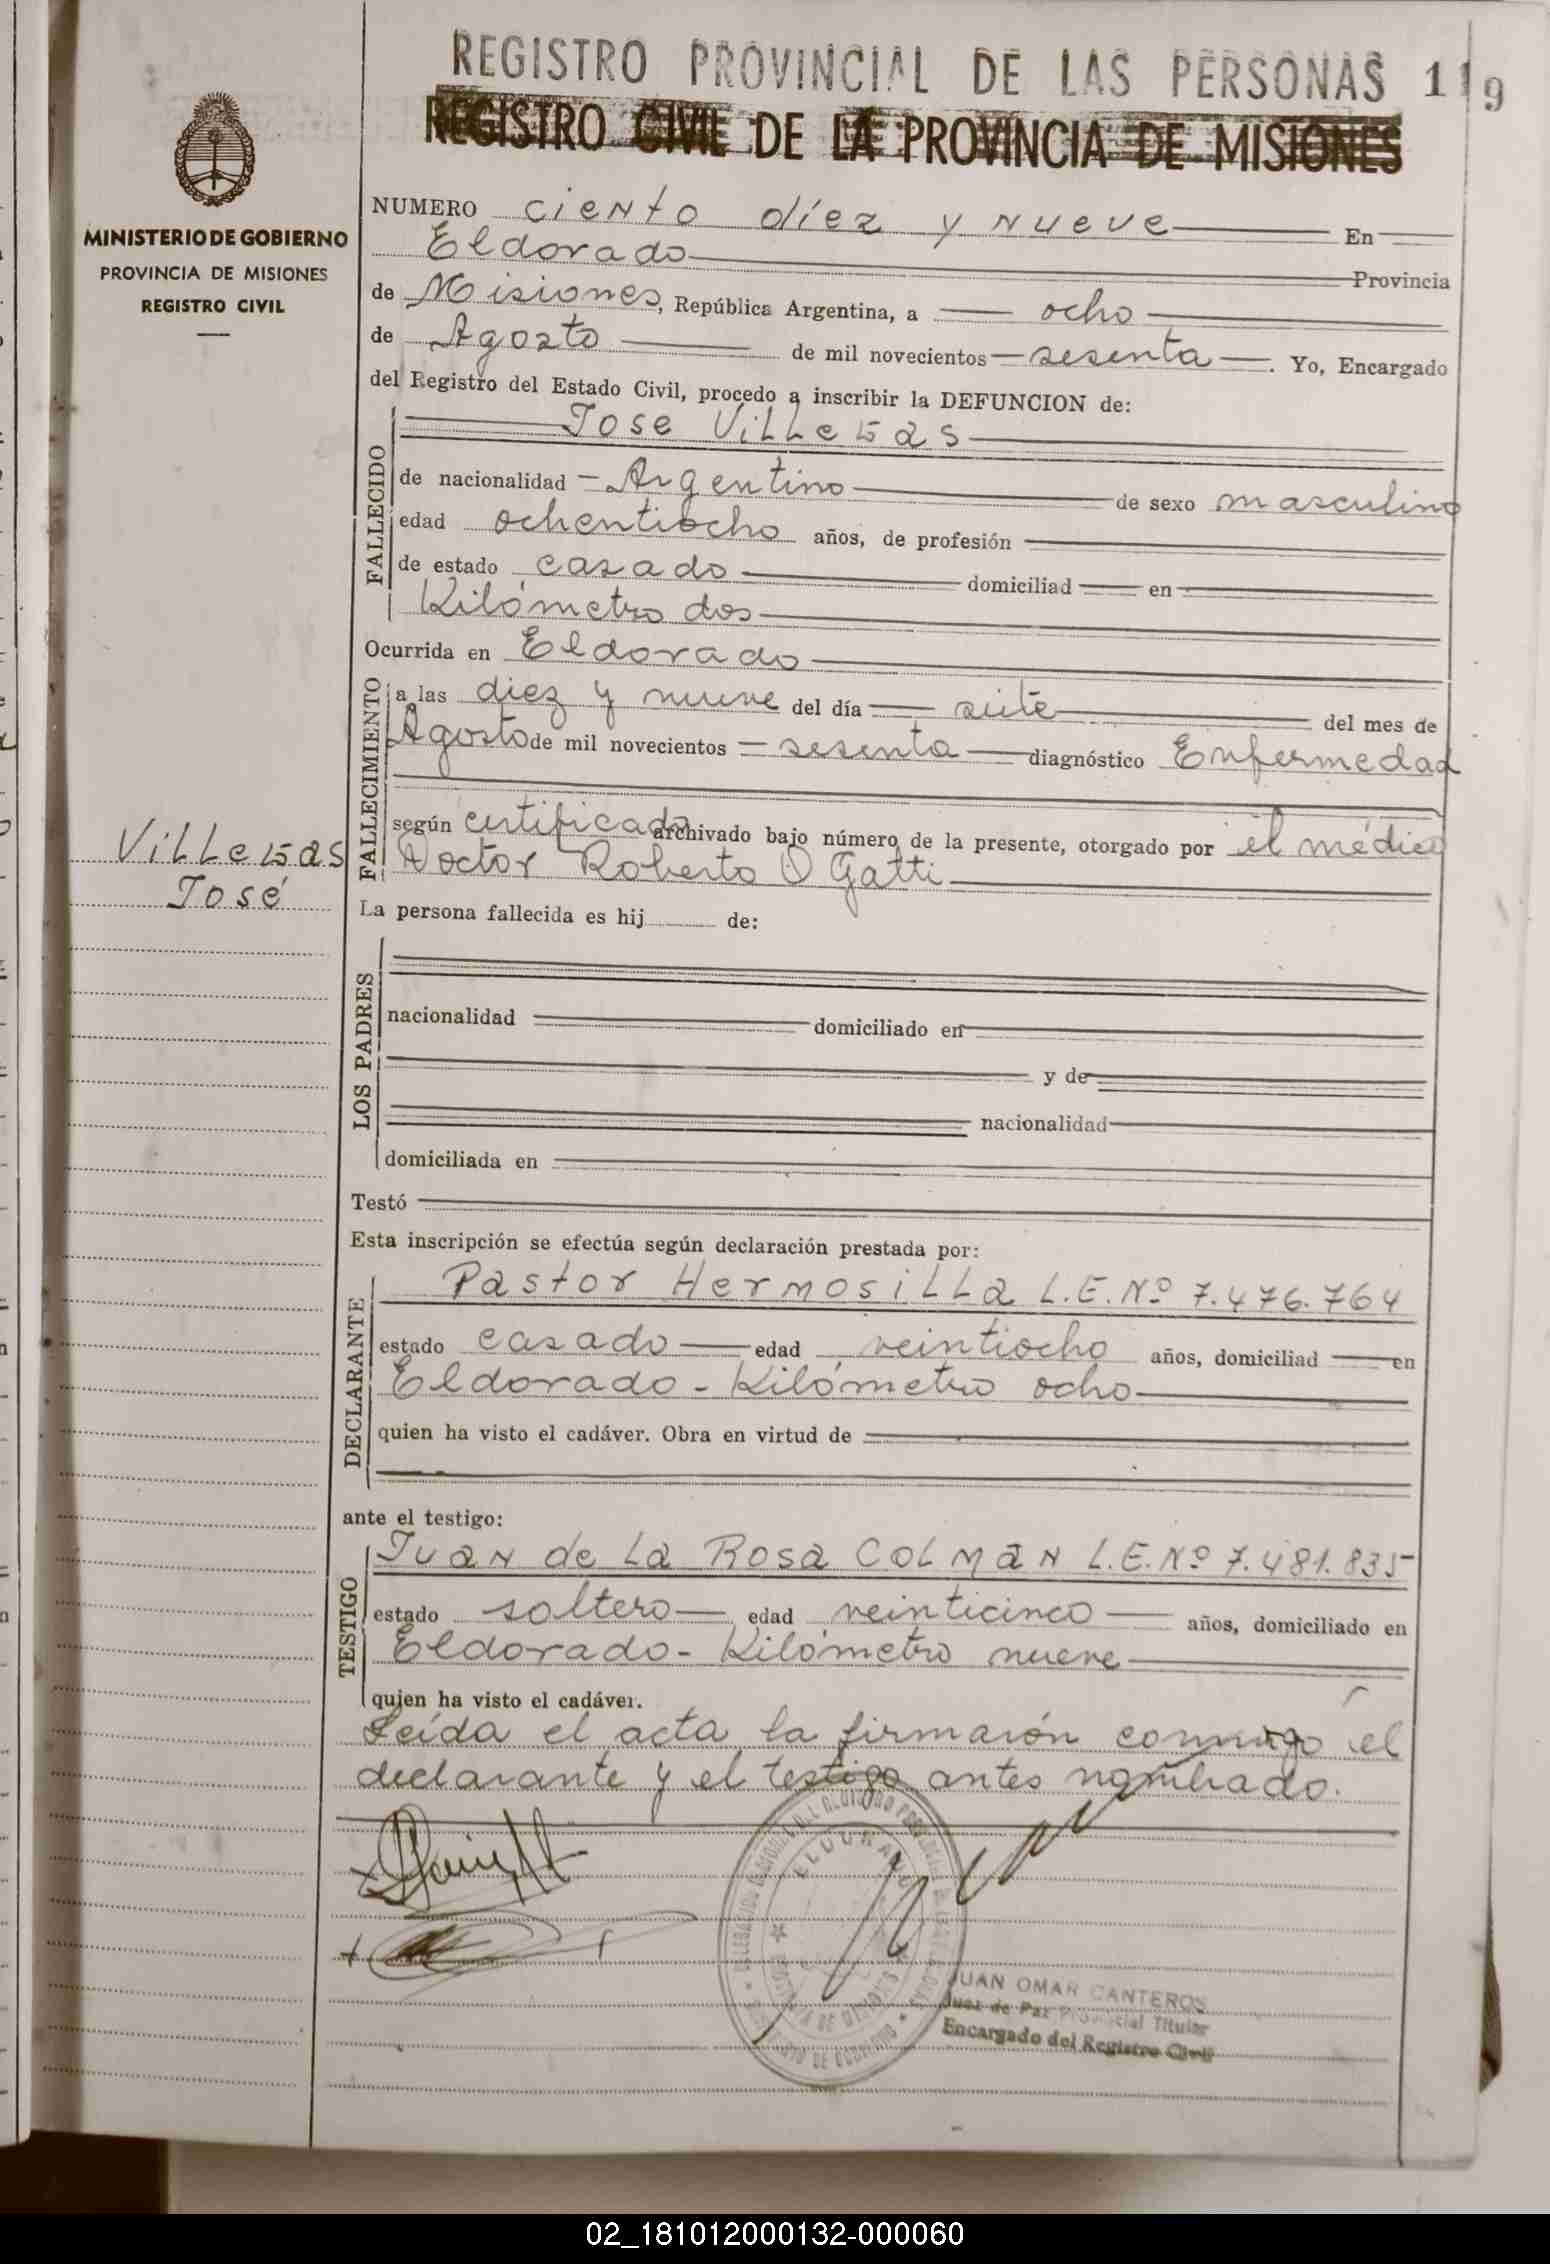 REGISTRO PROVINCIAL DE LAS PERSONAS 119
REGISTRO CIVIL DE LA PROVINCIA DE MISIONES
MINISTERIO DE GOBIERNO
PROVINCIA DE MISIONES
REGISTRO CIVIL
NUMERO ciento díez y nueve En
Eldorado Provincia
de Misiones, República Argentina, a ocho
de Agosto de mil novecientos sesenta. Yo, Encargado
del Registro del Estado Civil, procedo a inscribir la DEFUNCION de:
FALLECIDO
Jose Villegas
de nacionalidad Argentino de sexo masculino
edad ochentiocho años, de profesión
de estado casado domiciliad en
Kilómetro dos
Ocurrida en Eldorado
FALLECIMIENTO
a las diez y nueve del día siete del mes de
Agosto de mil novecientos sesenta diagnóstico Enfermedad
según certificado archivado bajo número de la presente, otorgado por el médico
Doctor Roberto O Gatti
Villegas
José
La persona fallecida es hij de:
LOS PADRES
nacionalidad domiciliado en
y de
nacionalidad
domiciliada en
Testó
Esta inscripción se efectúa según declaración prestada por:
DECLARANTE
Pastor Hermosilla L.E.Nº 7.476.764
estado casado edad veintiocho años, domiciliad en
Eldorado - Kilómetro ocho
quien ha visto el cadáver. Obra en virtud de
ante el testigo:
TESTIGO
Juan de la Rosa Colman L.E.Nº 7.481.835
estado soltero edad veinticinco años, domiciliado en
Eldorado - Kilómetro nueve
quien ha visto el cadáver.
Leída el acta la firmarón conmigo el
declarante y el testigo antes nombrado.
ELDORADO
JUAN OMAR CANTEROS
Juez de Paz Provincial Titular
Encargado del Registro Civil
02_181012000132-000060